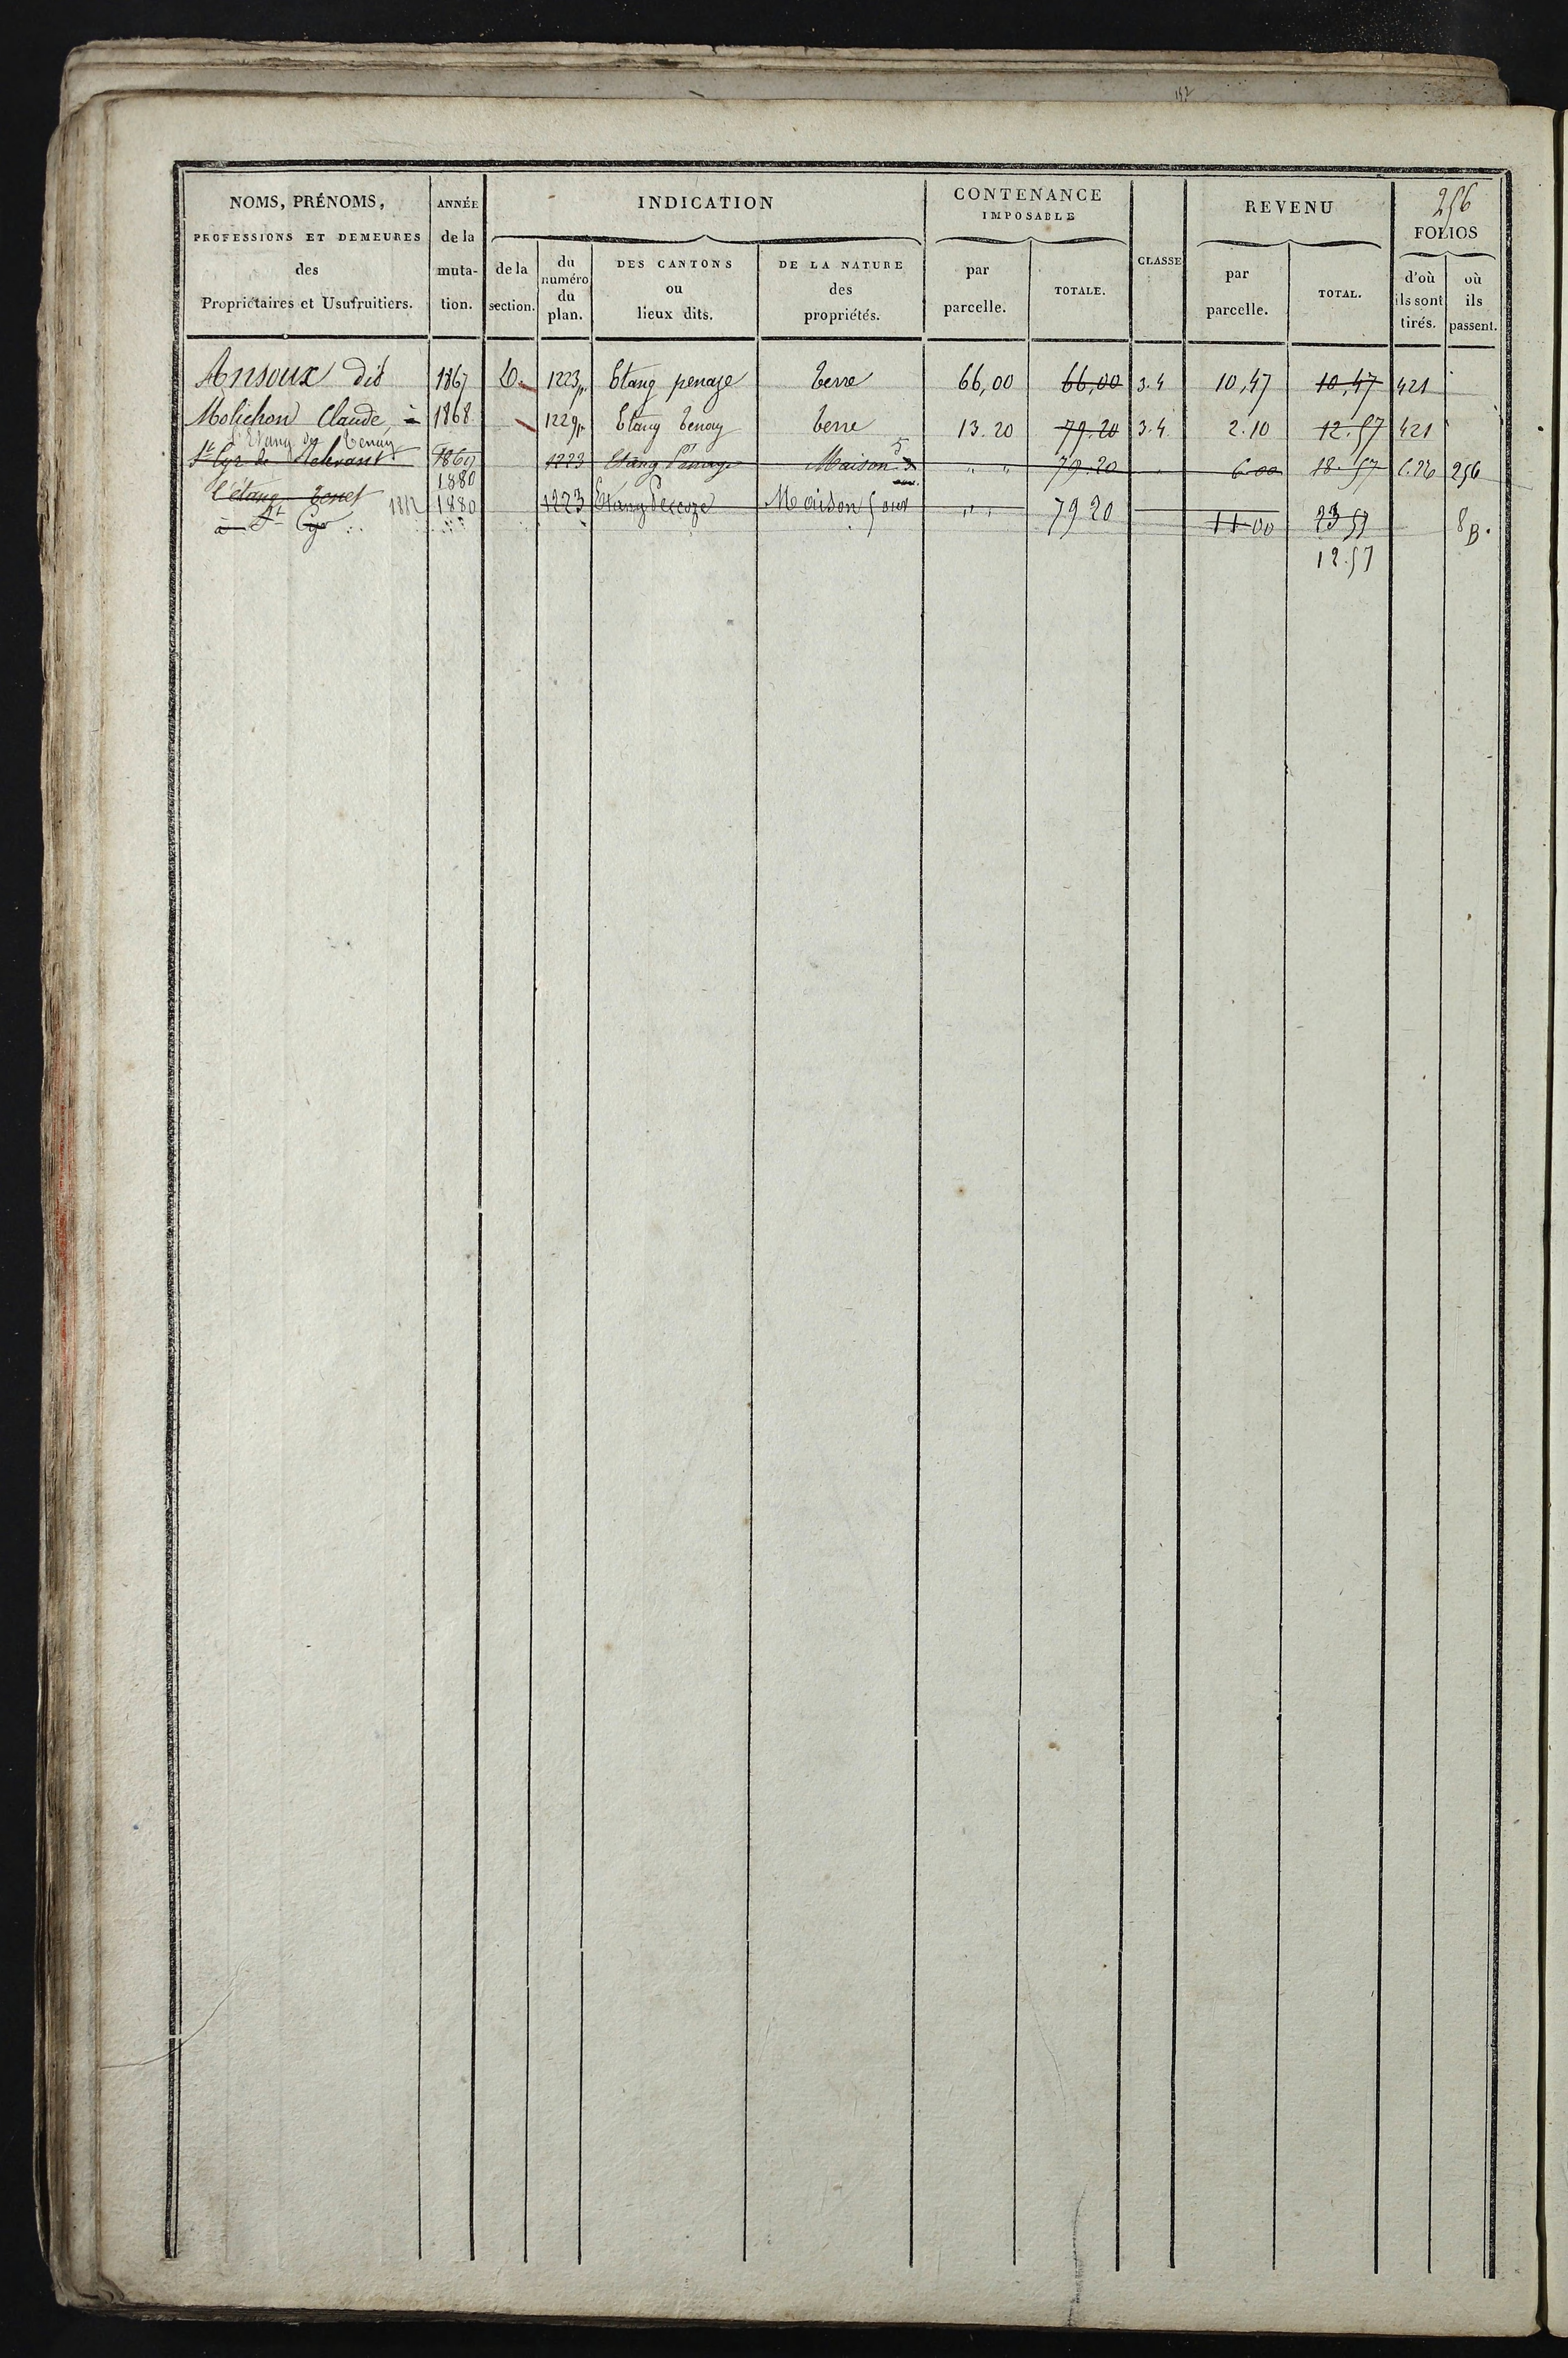 152
256
NOMS, PRÉNOMS,
PROFESSIONS ET DEMEURES
des
Propriétaires et Usufruitiers.
ANNÉE
de la
muta-
tion.
INDICATION
de la
section.
du
numéro
du
plan.
DES CANTONS
ou
lieux dits.
DE LA NATURE
des
propriétés.
CONTENANCE
IMPOSABLE
par
parcelle.
TOTALE.
CLASSE
REVENU
par
parcelle.
TOTAL.
FOLIOS
d'où
ils sont
tirés.
où
ils
passent.
Ansoux dit 1867 1223p Etang penaze terre 66,00 66,00 3.4 10,47 10,47 421
Molichon Claude, à 1868 1229p Etang tenay terre 13.20 79.20 3.4 2.10 12.57 421
l'Etang de Tenay
St Cyr de 1869 1223 Etang Maison 5 " " 79.20 6.00 18.57 256
1880
l'étang 1882 1880 1223 Etang Maison 5 ouv " " 79 20 11 00 23 57 8B.
à St Cyr
12.57